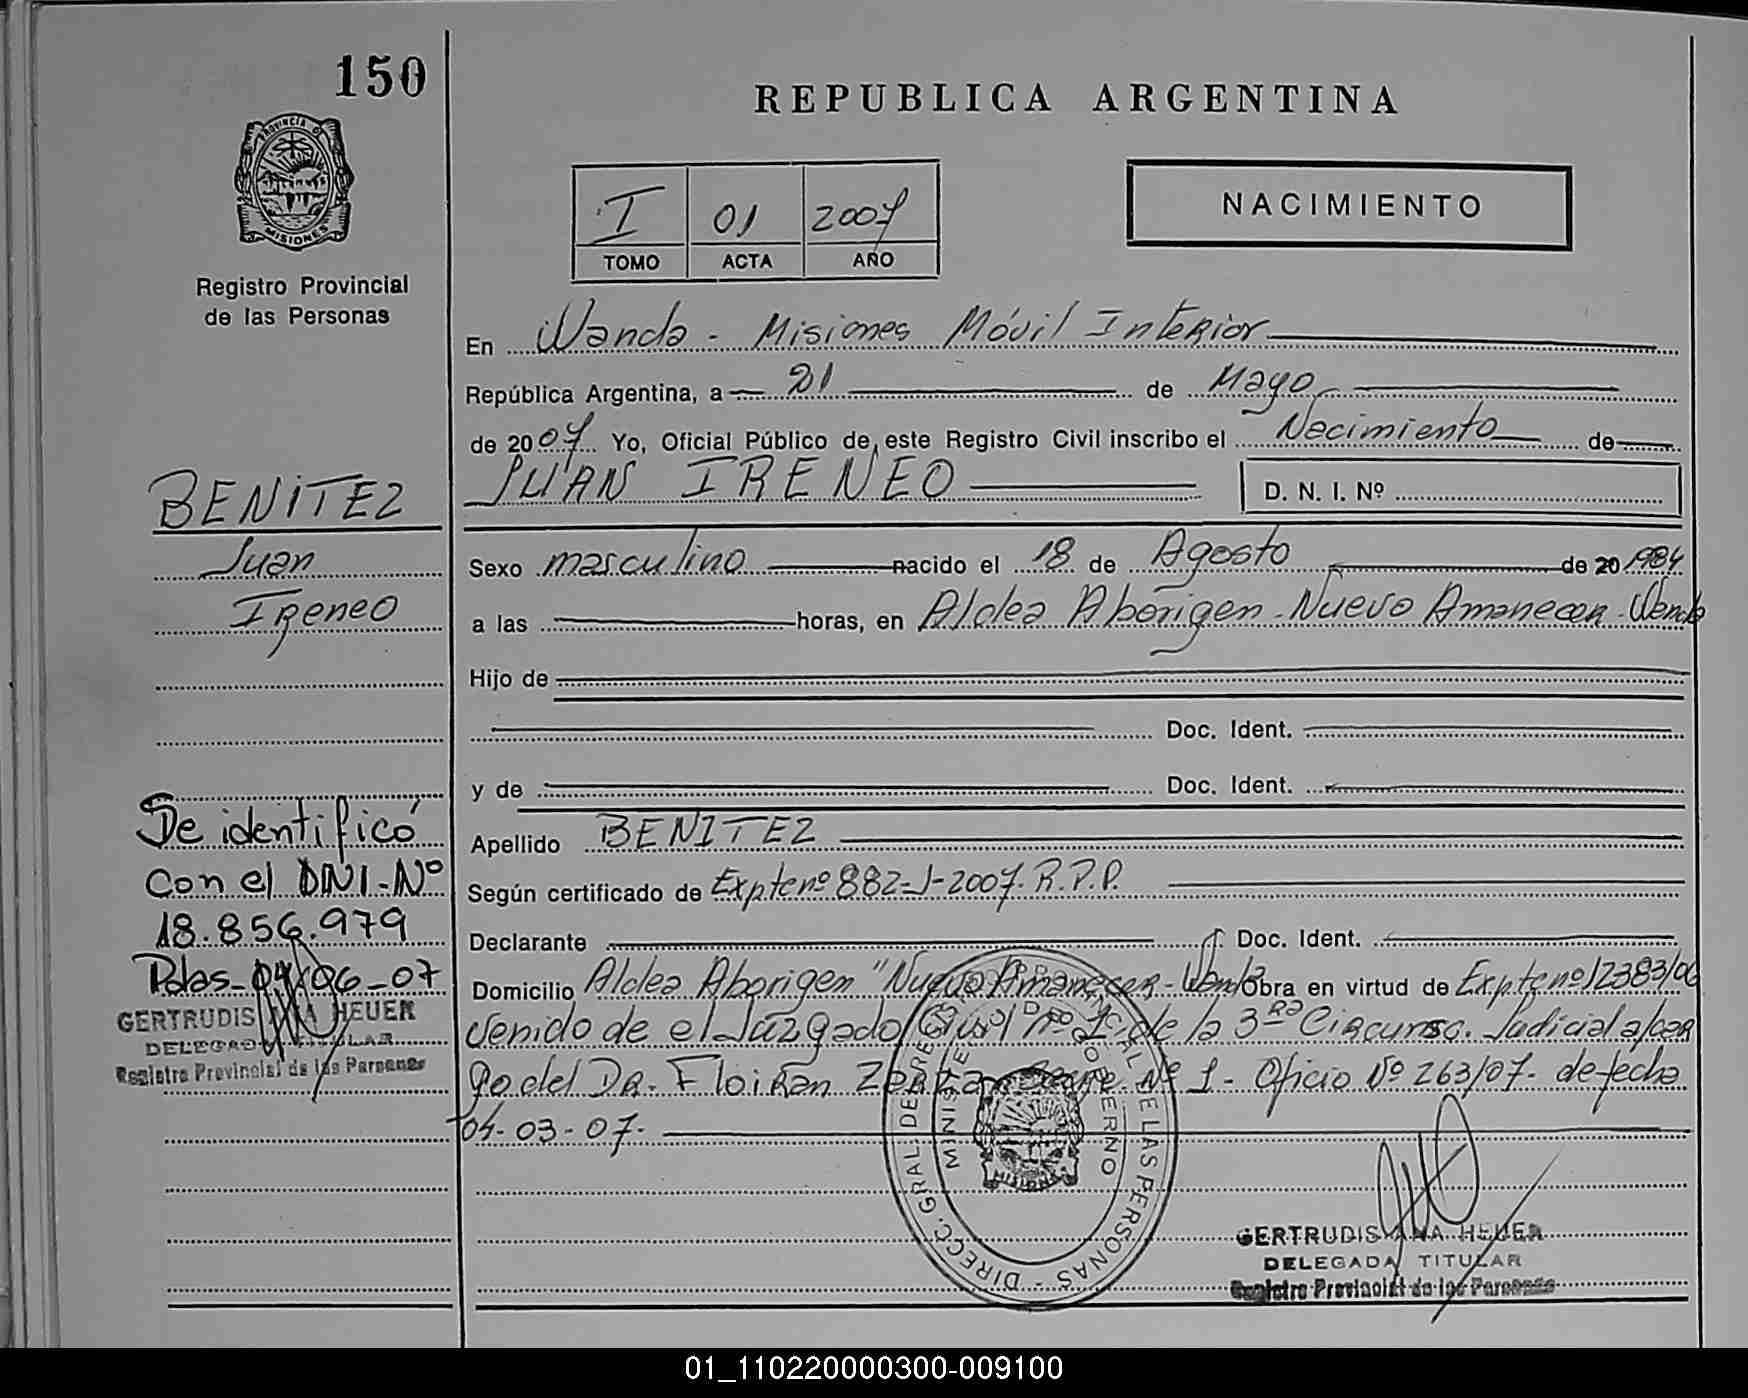 150
PROVINCIA DE
MISIONES
Registro Provincial
de las Personas
REPUBLICA ARGENTINA
I 01 2007
TOMO ACTA AÑO
NACIMIENTO
En Wanda - Misiones Móvil Interior
República Argentina, a 21 de Mayo
de 2007 Yo, Oficial Público de este Registro Civil inscribo el Nacimiento de
JUAN IRENEO D. N. I. Nº
Sexo masculino nacido el 18 de Agosto de 20 1984
a las horas, en Aldea Aborigen - Nuevo Amanecer - Wanda
Hijo de
Doc. Ident.
y de Doc. Ident.
Apellido BENITEZ
Según certificado de Expte nº 882-J-2007. R.P.P.
Declarante Doc. Ident.
Domicilio Aldea Aborigen "Nuevo Amanecer - Wanda Obra en virtud de Expte nº 12383/06
venido de el Juzgado Civil nº 1 de la 3ra Circunsc. Judicial a/car
go del Dr. Floirán Nº 1 - Oficio Nº 263/07 - de fecha
04-03-07-
DIRECC. GRAL. DE REG. PROVINCIAL DE LAS PERSONAS -
MINISTE DE GOBIERNO
MISIONES
GERTRUDIS ANA HEUER
DELEGADA TITULAR
Registro Provincial de las Personas
BENITEZ
Juan
Ireneo
Se identificó
con el DNI-Nº
18.856.979
Pdas-04-06-07
GERTRUDIS ANA HEUER
DELEGADA TITULAR
Registro Provincial de las Personas
01_110220000300-009100